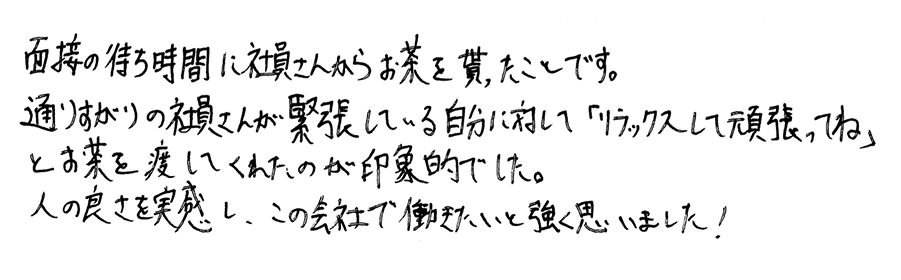 面接の待ち時間に社員さんからお茶を貰ったことです。
通りすがりの社員さんが緊張している自分に対して「リラックスして頑張ってね」
とお茶を渡してくれたのが印象的でした。
人の良さを実感し、この会社で働きたいと強く思いました!